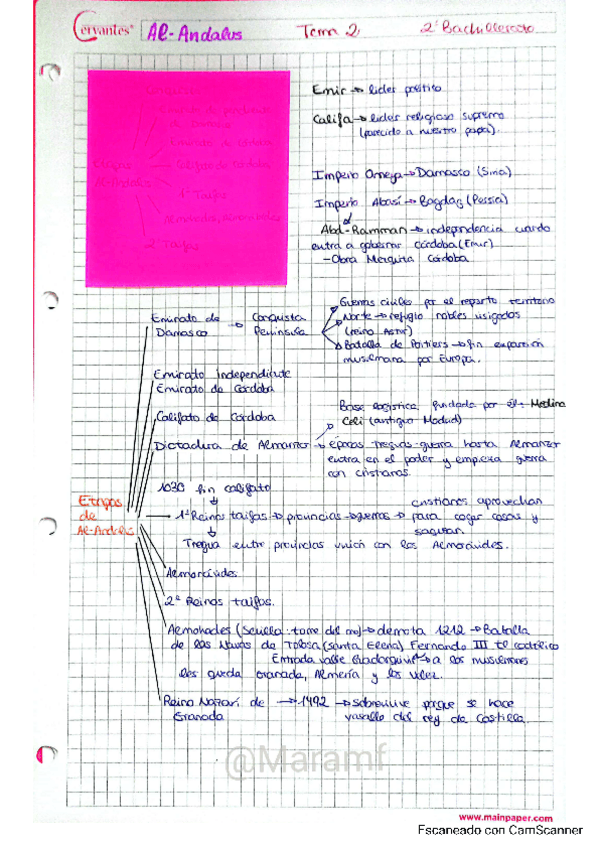 Cervantes Al-Andalus Tema 2 2º Bachillerato
Emirato de pendiente
de Damasco
Emirato de Córdoba
Etapas
Al-Andalus
Califato de Córdoba
1º Taifas
Almohades, Almorávides
2º Taifas
Emir → lider político
Califa → lider religioso supremo
(parecido a nuestro papa).
Imperio Omeya → Damasco (Siria)
Imperio Abasí → Bagdag (Persia)
Abd-Ramman → independencia cuando
entra a gobernar Córdoba (Emir)
- Obra Mezquita Córdoba
Emirato de
Damasco → Conquista
Península
Guerras civiles por el reparto territorio
Norte → refugio nobles visigodos
(reino Astur)
Batalla de Poitiers → fin expansión
musulmana por Europa.
Emirato independiente
Emirato de Córdoba
Califato de Córdoba
Base logistica fundada por él: Medina
Celi (antigua Madud)
Dictadura de Almanzor → épocas treguas-guerra hasta Almanzor
entra en el poder y empieza guerra
con cristianos.
1030 fin califato
Etapas
de
Al-Andalus
1º Reinos taifas → provincias → guerras → cristianos aprovechan
para coger cosas y
saquear.
Tregua entre provincias unión con los Almorávides.
Almorávides
2º Reinos taifas.
Almohades (Sevilla: torre del oro) → derrota 1212 → Batalla
de las Navas de Tolosa (Santa Elena) Fernando III el católico
Entrada valle Guadalquivir → a los musulmanes
les queda Granada, Almería y los Vélez.
Reino Nazarí de
Granada → 1492 → sobrevive porque se hace
vasallo del rey de Castilla
@Maramf
www.mainpaper.com
Escaneado con CamScanner